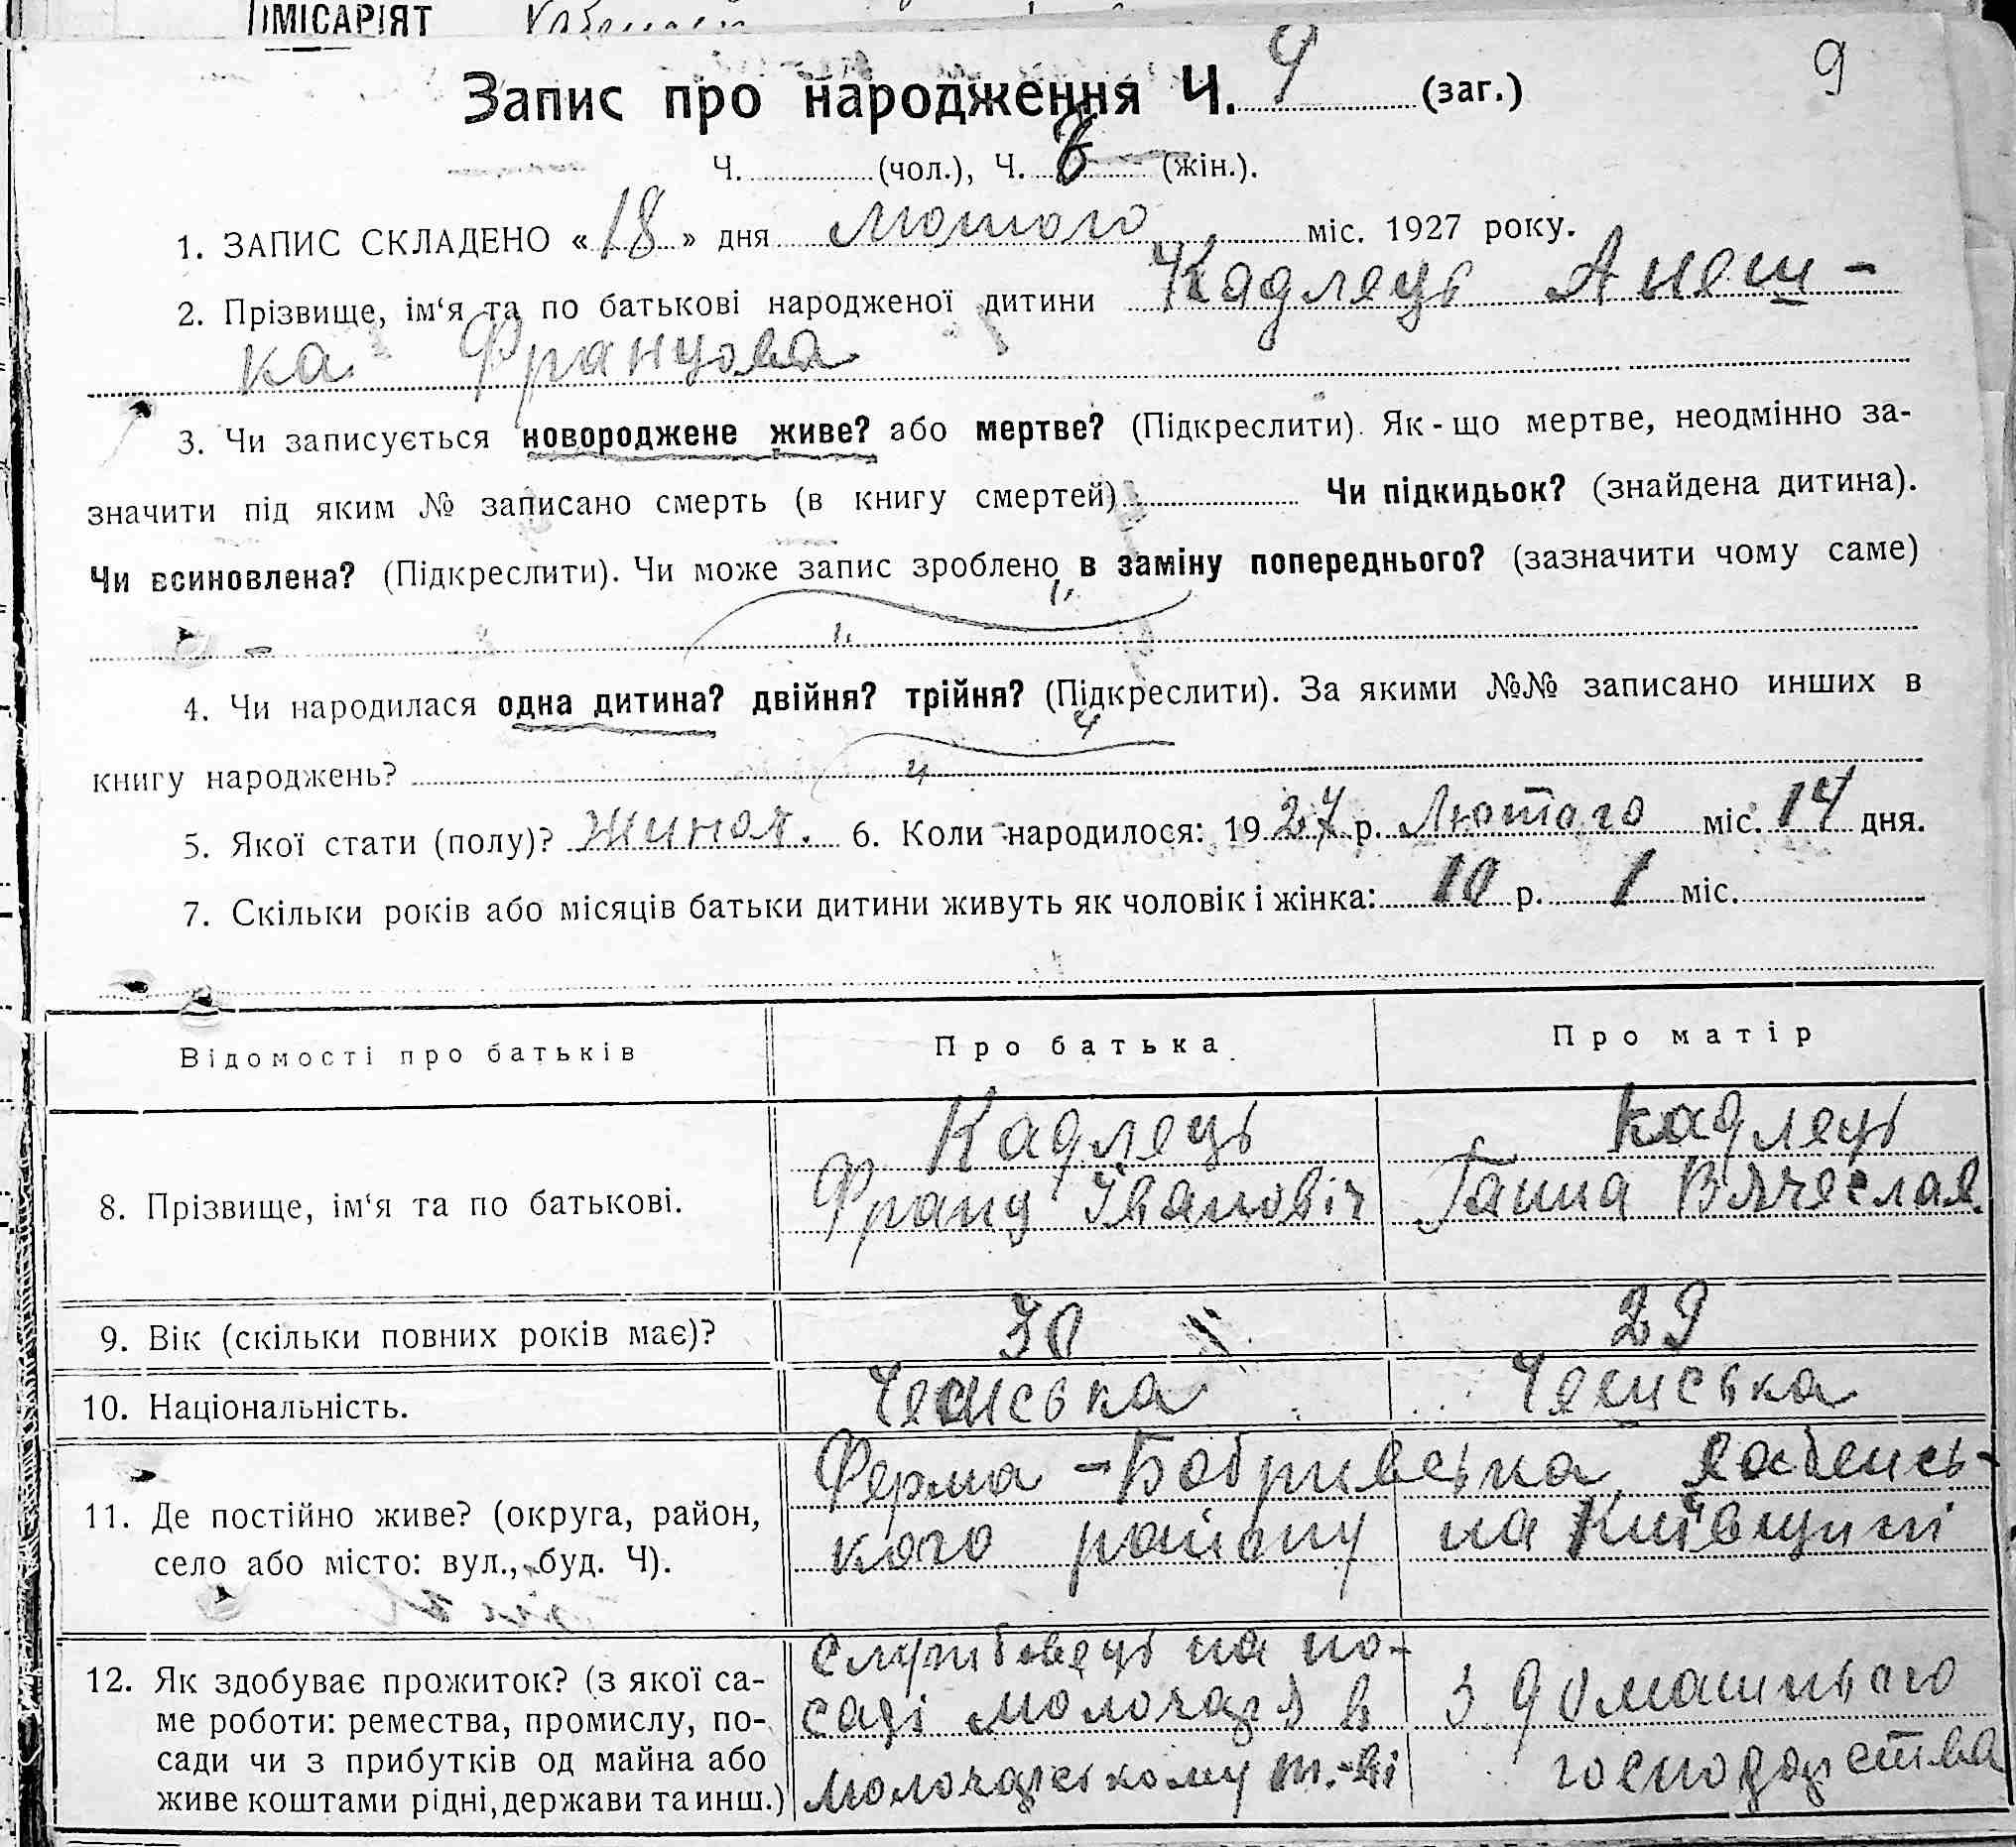 МІСАРІЯТ
9
Запис про народження Ч. 9 (заг.)
Ч. (чол.), Ч. (жін.).
1. ЗАПИС СКЛАДЕНО «18» дня Лютого міс. 1927 року.
2. Прізвище, ім‘я та по батькові народженої дитини Кадлець Анеш-
ка Францова
3. Чи записується новороджене живе? або мертве? (Підкреслити). Як-що мертве, неодмінно за-
значити під яким № записано смерть (в книгу смертей) Чи підкидьок? (знайдена дитина).
Чи всиновлена? (Підкреслити). Чи може запис зроблено в заміну попереднього? (зазначити чому саме)
4. Чи народилася одна дитина? двійня? трійня? (Підкреслити). За якими №№ записано инших в
книгу народжень?
5. Якої стати (полу)? Жиноч. 6. Коли народилося: 1927 р. Лютого міс. 14 дня.
7. Скільки років або місяців батьки дитини живуть як чоловік і жінка: 10 р. 1 міс.
Відомості про батьків Про батька Про матір
Кадлець Кадлець
8. Прізвище, ім‘я та по батькові. Франц Івановіч Ганна Вячеслав.
9. Вік (скільки повних років має)? 30 29
10. Національність. Чешська Чешська
Ферма - Бобривська,
11. Де постійно живе? (округа, район, кого району на Київщині
село або місто: вул., буд. Ч).
Службовець на по-
12. Як здобуває прожиток? (з якої са- саді молочаря в З домашнього
ме роботи: ремества, промислу, по- молочарському т-ві господарства
сади чи з прибутків од майна або
живе коштами рідні, держави та инш.)